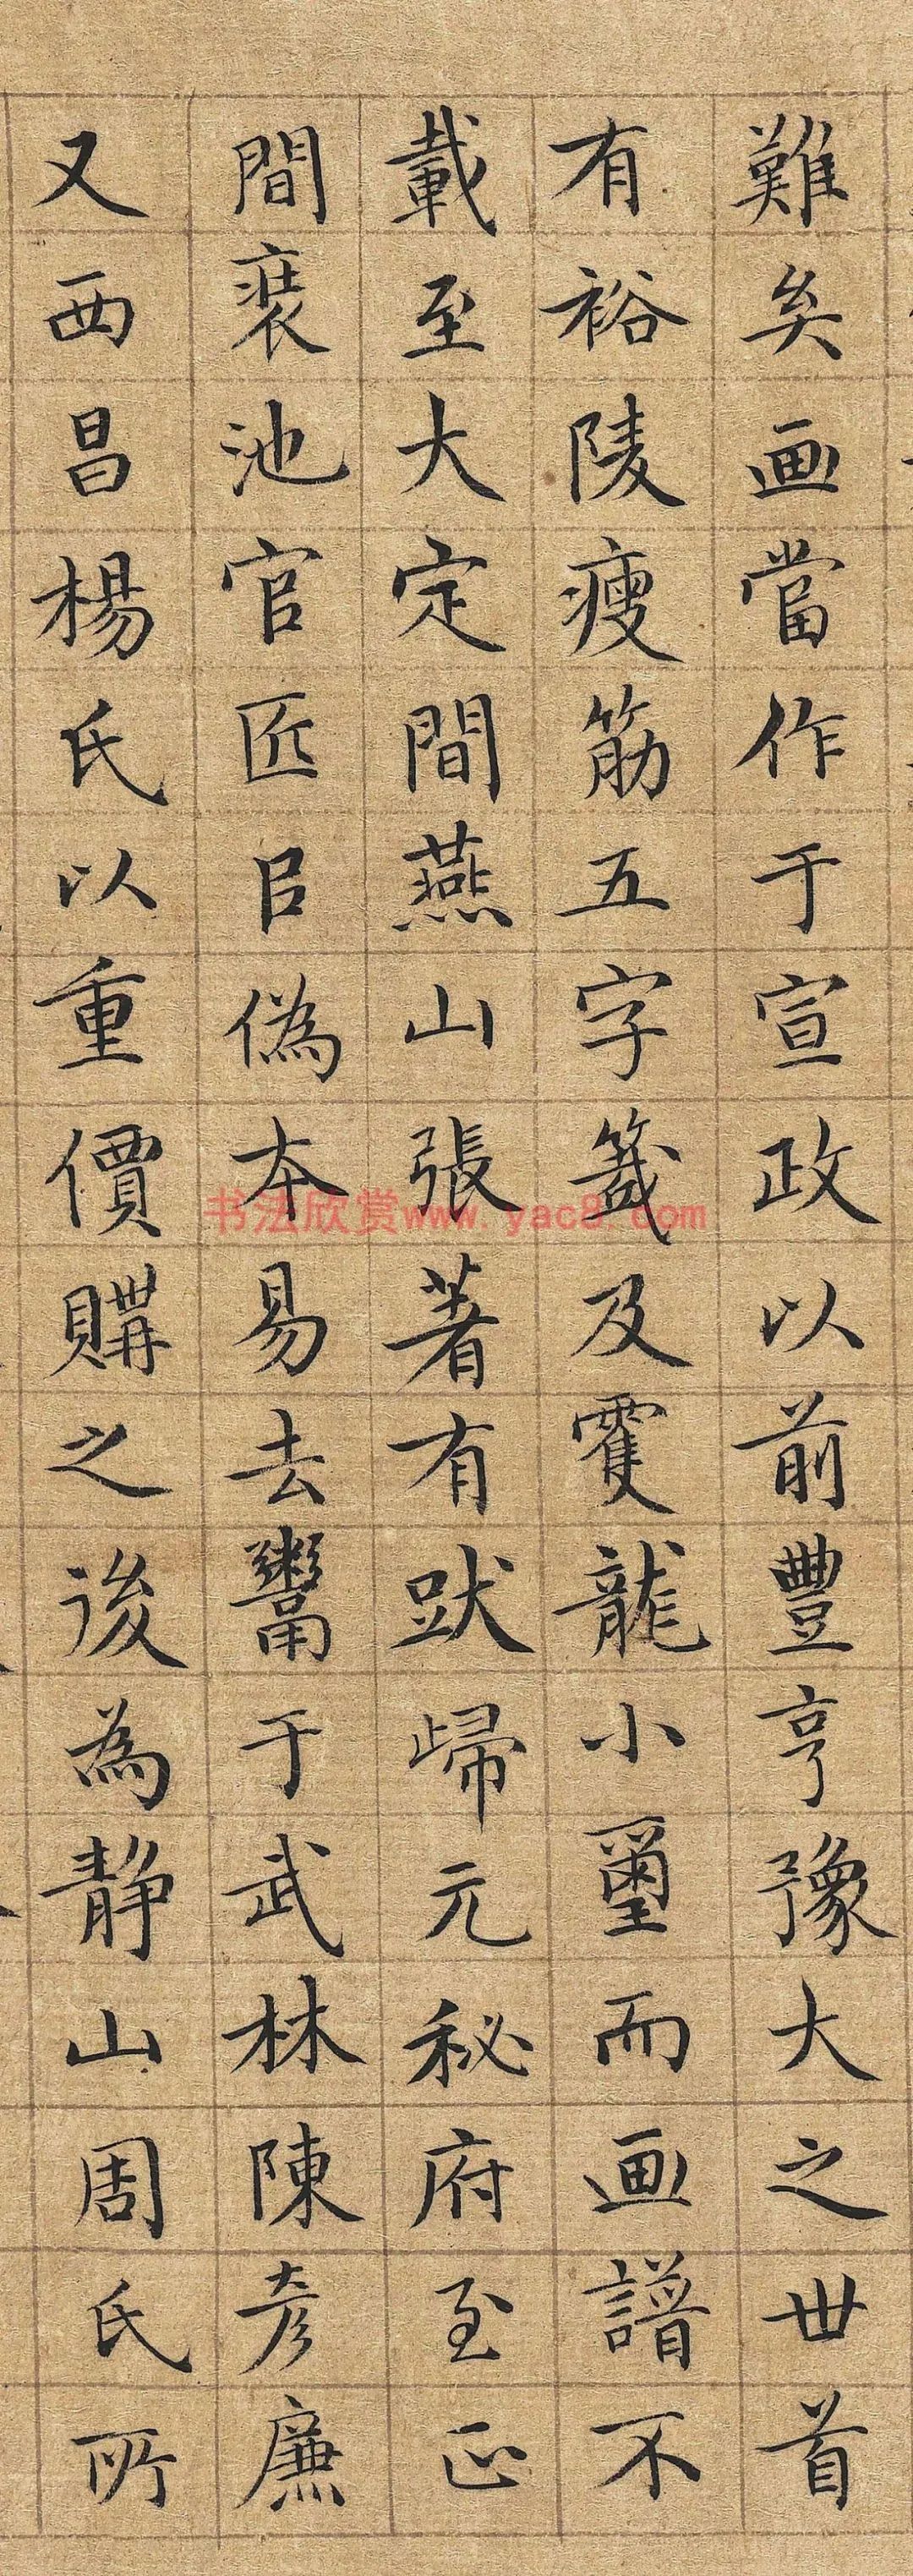 難矣画當作于宣政以前豐亨豫大之世首
有裕陵瘦筋五字籤及雙龍小璽而画譜不
載至大定間燕山張著有跋歸元秘府至正
間裝池官匠以偽本易去鬻于武林陳彦廉
又西昌楊氏以重價購之後為静山周氏所
书法欣赏www.yac8.com